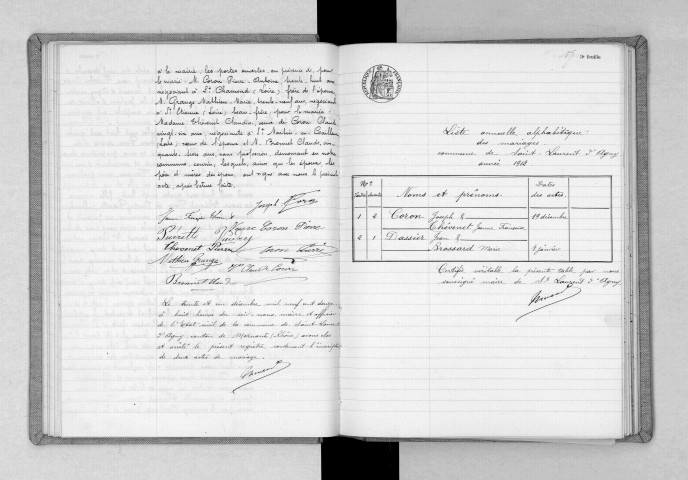 à la mairie, les portes ouvertes, en présence de, pour
le marié: M. Coron Pierre Antoine, trente huit ans
négociant à St Chamond (Loire), frère de l'époux,
M. Grange Mathieu Marie, trente-neuf ans, négociant
à St Etienne (Loire), beau-frère; pour la mariée:
Madame Thévenet Claudia, veuve de Coron Claude
vingt-six ans, négociante à St Martin-en-Coailleux
Loire, sœur de l'épouse et M. Claude, cin-
quante trois ans, sans profession, demeurant en notre
commune, lesquels, ainsi que les époux, les
père et mère des époux, ont signé avec nous le présent
acte, après lecture faite.
Joseph Coron
Coron Pierre
Thevenet Pierre
Mathieu Grange
Claude
Le trente et un décembre mil neuf cent douze
à huit heures du soir, nous, maire et officier
de l'Etat civil de la commune de Saint Laurent
d'Agny, canton de Mornant (Rhône) avons clos
et arrêté le présent registre contenant l'inscription
de deux actes de mariage.
Feuillet
Liste annuelle alphabétique
des mariages
commune de Saint-Laurent d'Agny
année 1912
Nos
Noms et prénoms
Dates
des actes
1 2 Coron Joseph & 19 décembre
Thévenet Jeanne Françoise
2 1 Dassier Jean &
Brossard Marie janvier
Certifié véritable la présente table par nous
soussigné maire de St Laurent d'Agny